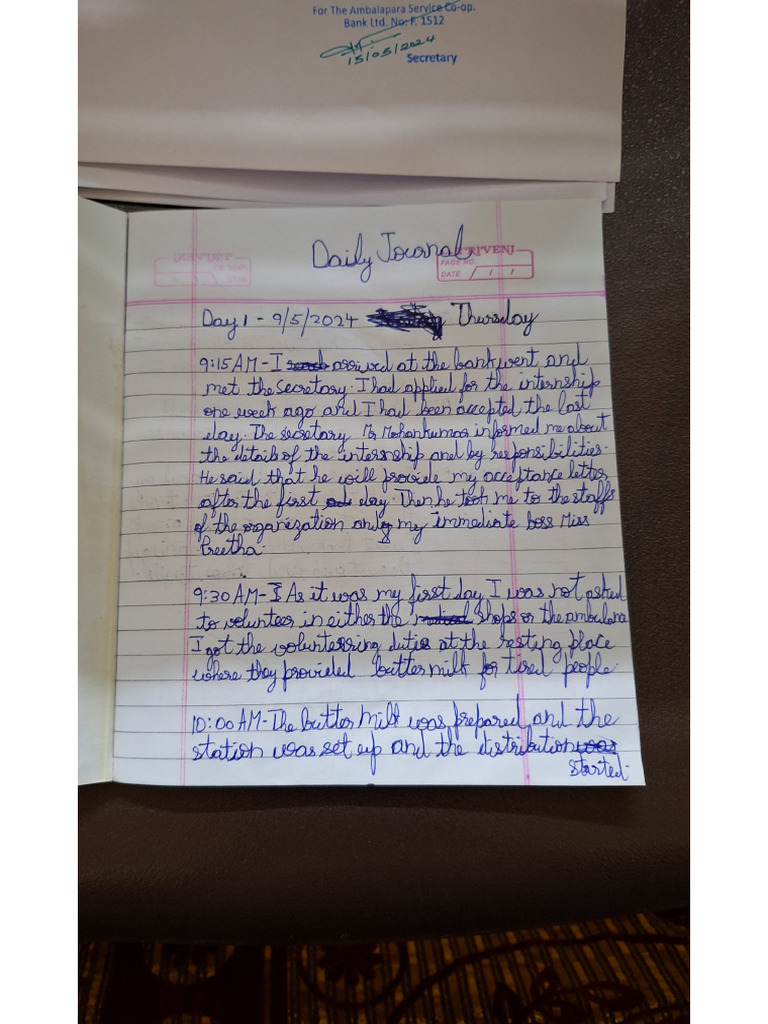 For The Ambalapara Service Co-op.
Bank Ltd. No: F. 1512
15/05/2024
Secretary
Daily Journal
TRIVENI
PAGE NO.
DATE / /
Day 1 - 9/5/2024 Thursday
9:15 AM - I arrived at the bank went and
met the Secretary. I had applied for the internship
one week ago and I had been accepted the last
day. The secretary Mr Mohankumar informed me about
the details of the internship and by responsibilities.
He said that he will provide my acceptance letter
after the first day. Then he took me to the staffs
of the organization and my immediate boss Miss
Preetha.
9:30 AM - As it was my first day I was not asked
to volunteer in either the shops or the ambulance
I got the volunterring duties at the resting place
where they provided butter milk for tired people.
10:00 AM - The butter milk was prepared and the
station was set up and the distribution
started.